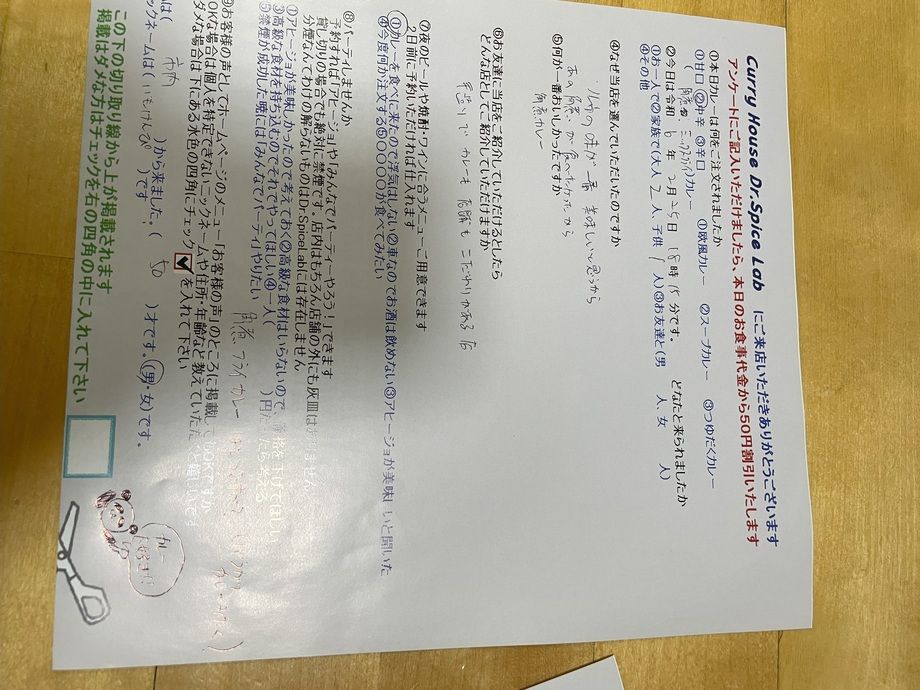 Curry House Dr.Spice Lab にご来店いただきありがとうございます
アンケートにご記入いただけましたら、本日のお食事代金から50円割引いたします
①本日カレーは何をご注文されましたか
①甘口 ②中辛 ③辛口 ①欧風カレー ②スープカレー ③つゆだくカレー
カレー
②今日は令和 6 年 2月25日 18時15分です。 どなたと来られましたか
①お一人で②家族で(大人 2 人、子供 1 人)③お友達と(男 人、女 人)
④その他
④なぜ当店を選んでいただいたのですか
ルーの味が一番美味しいと思うから
⑤何が一番おいしかったですか
角煮カレー
⑥お友達に当店をご紹介していただけるとしたら
どんな店としてご紹介していただけますか
手造りで カレーも 角煮も こだわりがある 店
⑦夜のビールや焼酎・ワインに合うメニューご用意できます
2日前に予約いただければ仕入れます
①カレーを食べに来たので浮気はしない②車なのでお酒は飲めない③アヒージョが美味しいと聞いた
④今度何か注文する⑤〇〇〇〇が食べてみたい
⑧パーティしませんか
予約すれば「アヒージョ」や「みんなでパーティーやろう！」できます
貸し切りの場合でも絶対に禁煙です。店内はもちろん店舗の外にも灰皿は
分煙なんてわけの解らないものはDr.SpiceLabには存在しません
①アヒージョが美味しかったので考えておく②高級な食材はいらないので、価格を下げてほしい
③高級な食材を持ち込むのでそれでやってほしい④一人( )円だったら考える
⑤禁煙が成功した暁には「みんなでパーティ」やりたい
角煮 フライ カレー
⑨お客様の声としてホームページのメニュー「お客様の声」のところに掲載して
OKな場合は個人を特定できないニックネームや住所・年齢など教えていただ
ダメな場合は下にある水色の四角にチェック ✓ を入れて下さい
は( 市内 )から来ました。( 50 )才です。(男・女)です。
ックネームは( いもけんぴ )です
この下の切り取り線から上が掲載されます
掲載はダメな方はチェックを右の四角の中に入れて下さい
カレー